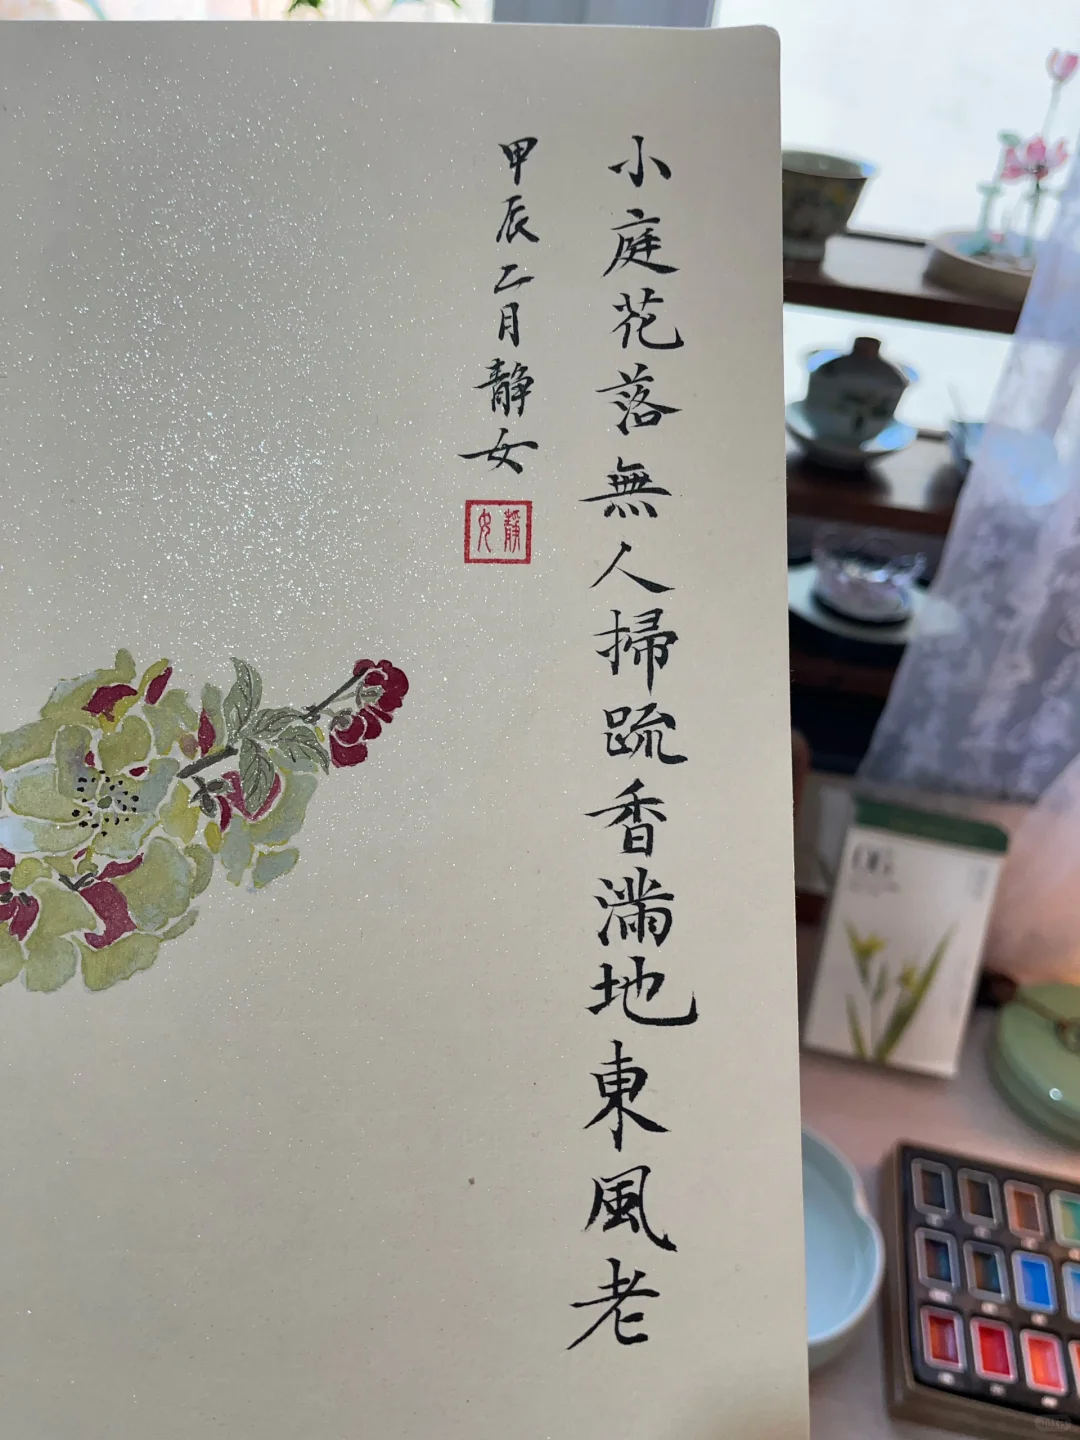 小庭花落無人掃疏香滿地東風老
甲辰二月靜女
靜女
06